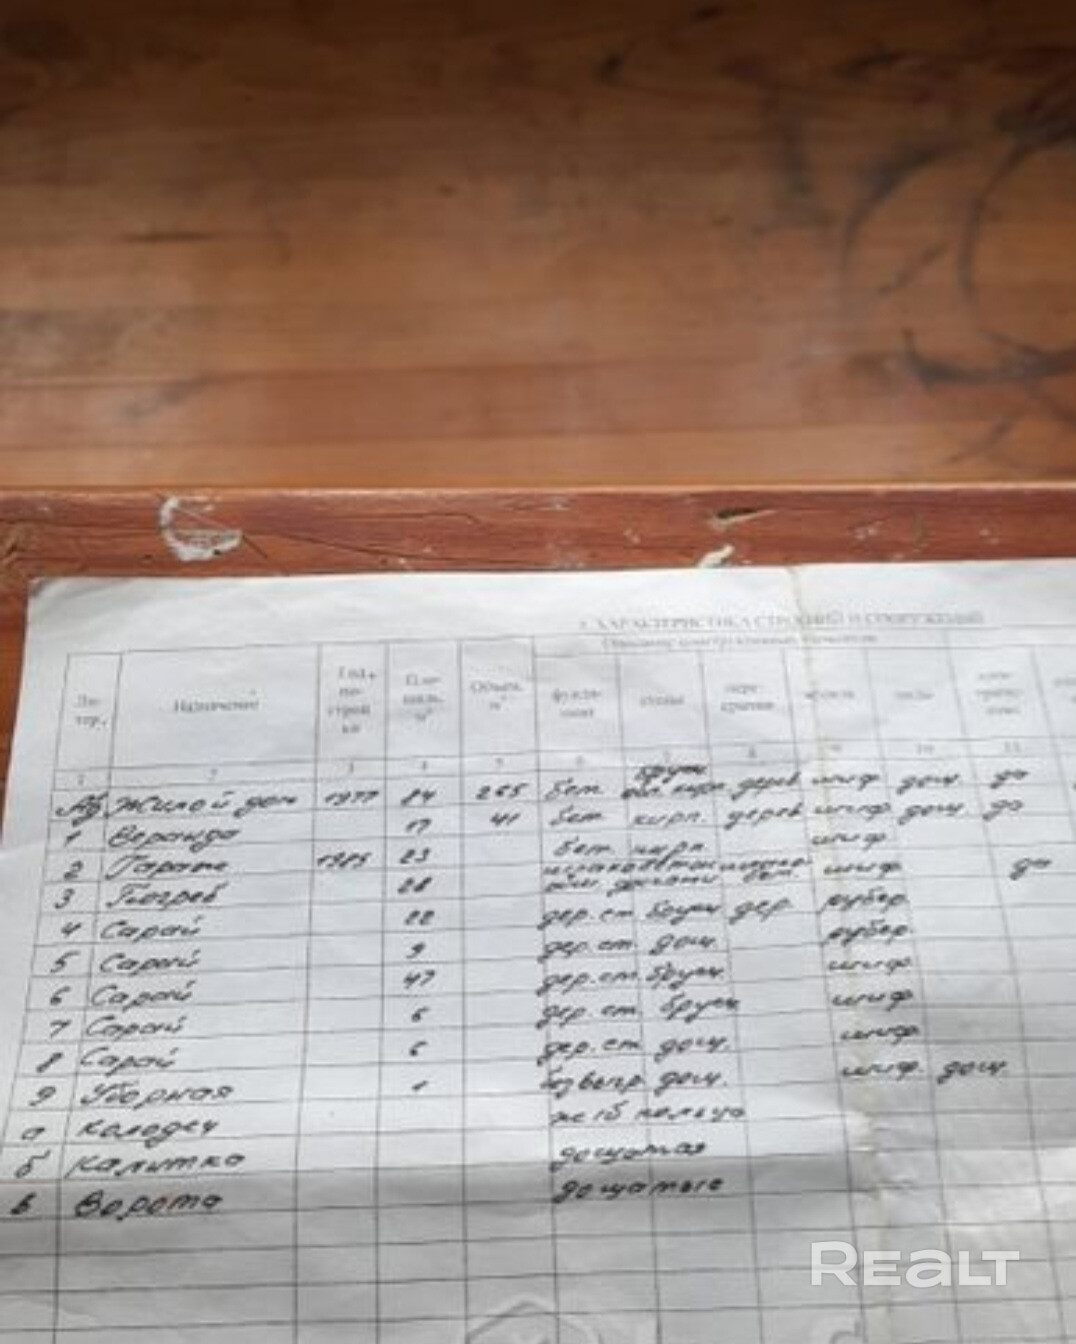 ХАРАКТЕРИСТИКА СТРОЕНИЙ И СООРУЖЕНИЙ
Описание конструктивных элементов
Ли-тер. Назначение Год по-строй ки Пло-щадь, м² Объем, м³ фунда-мент стены пере-крытия кровля полы
1 2 3 4 5 6 7 8 9 10 11
Жилой дом 1977 84 265 бет. брусч. обл. кирп. дерев шиф дощ. да
1 Веранда 17 41 бет. кирп. дерев шиф дощ да
2 Гараж 1985 23 бет. кирп. шиф
3 Погреб 28 шиф да
4 Сарай 22 дер. ст. брусч дер. рубер.
5 Сарай 9 дер. ст. дощ. рубер.
6 Сарай 47 дер. ст. брусч шиф
7 Сарай 6 дер. ст. брусч шиф
8 Сарай 6 дер. ст. дощ. шиф
9 Уборная 1 дощ. шиф. дощ
а Колодец ж/б кольца
б Калитка дощатая
в Ворота дощатые
REALT